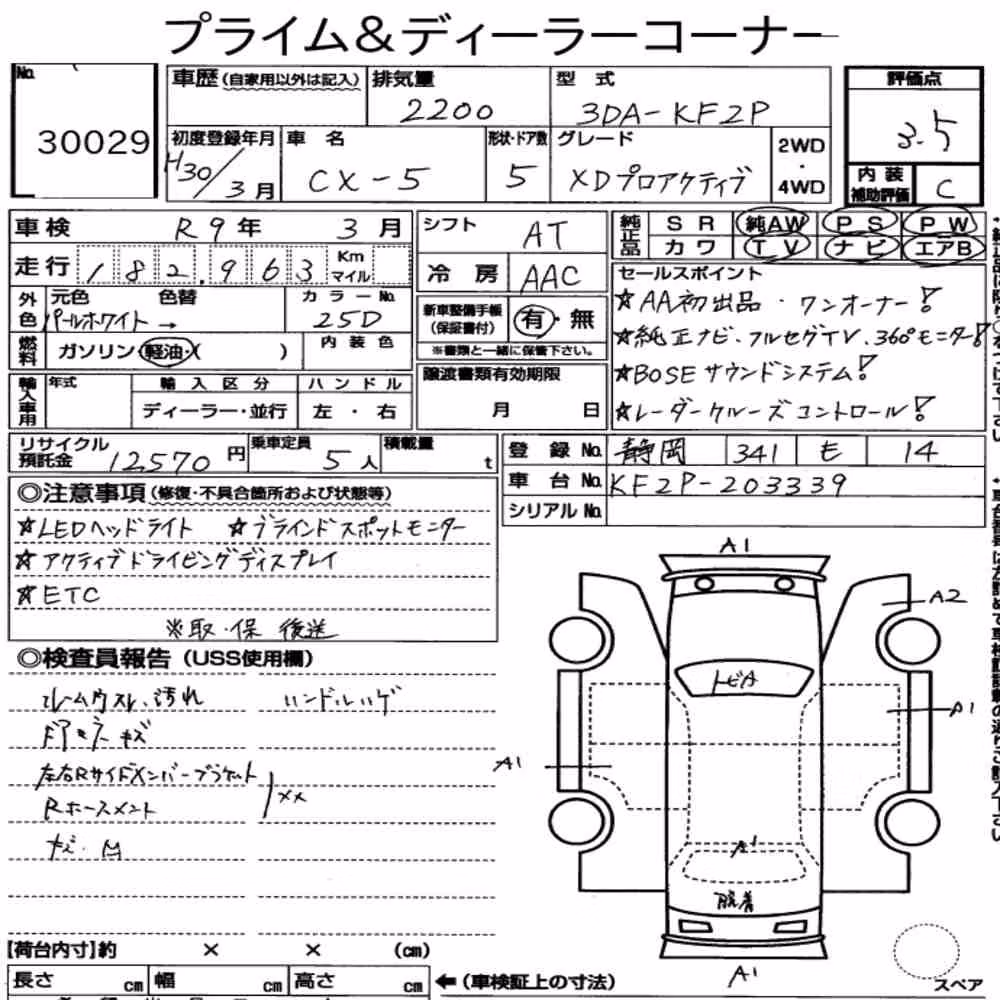 プライム&ディーラーコーナー
No. 30029
車歴(自家用以外は記入)
排気量 2200
型式 3DA-KF2P
評価点 3.5
初度登録年月 H30/3月
車名 CX-5
形状・ドア数 5
グレード XDプロアクティブ
2WD・4WD
内装補助評価 C
車検 R9年 3月
シフト AT
純正品 SR 純AW PS PW
カワ TV ナビ エアB
走行 182,963 Km マイル
冷房 AAC
セールスポイント
☆AA初出品・ワンオーナー!
☆純正ナビ、フルセグTV、360°モニター!
☆BOSEサウンドシステム!
☆レーダークルーズコントロール!
外色 元色 色替 パールホワイト→
カラーNo. 25D
新車整備手帳(保証書付) 有・無
※書類と一緒に保管下さい。
燃料 ガソリン・軽油・( )
内装色
輸入車用 年式 輸入区分 ハンドル
ディーラー・並行 左・右
譲渡書類有効期限
月 日
リサイクル預託金 12570円
乗車定員 5人
積載量 t
登録No. 静岡 341 も 14
車台No. KF2P-203339
シリアルNo.
◎注意事項(修復・不具合箇所および状態等)
☆LEDヘッドライト ☆ブラインドスポットモニター
☆アクティブドライビングディスプレイ
☆ETC
※取・保 後送
◎検査員報告(USS使用欄)
ハンドルハゲ
ドアミラーキズ
左右Rサイドメンバーブラケット
Rホースメント
XX
A1
A2
トビA
A1
A1
A1
脱着
A1
スペア
[荷台内寸]約 × × (cm)
長さ cm 幅 cm 高さ cm
←(車検証上の寸法)